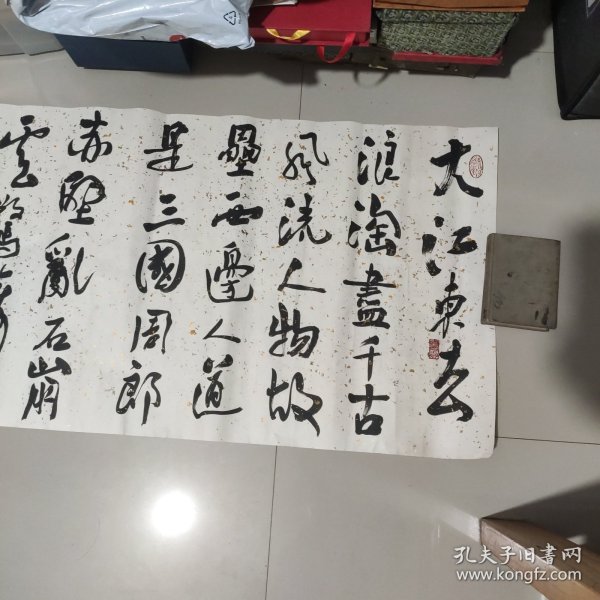 大江東去
浪淘盡千古
風流人物故
壘西邊人道
是三國周郎
赤壁亂石崩
雲
孔夫子旧书网
www.kongfz.com